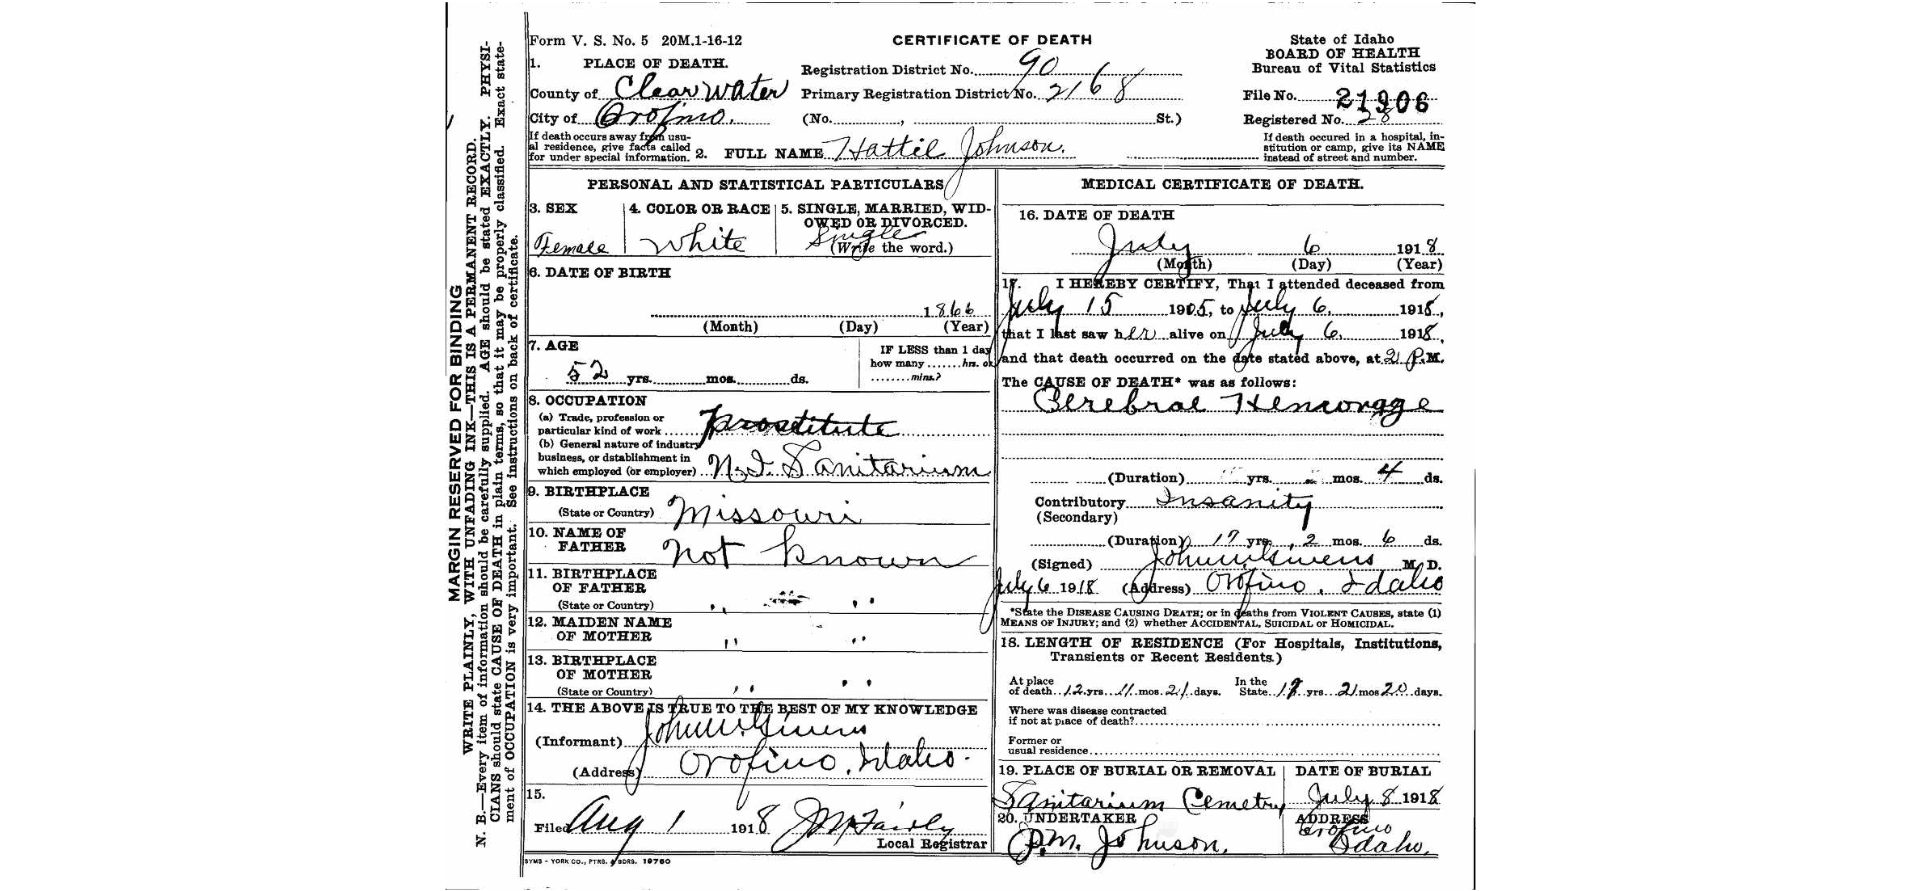 Form V. S. No. 5 20M.1-16-12
CERTIFICATE OF DEATH
State of Idaho
BOARD OF HEALTH
Bureau of Vital Statistics
1. PLACE OF DEATH.
County of Clearwater
City of Orofino.
If death occurs away from usu-
al residence, give facts called
for under special information.
Registration District No. 90
Primary Registration District No. 2168
(No. , St.)
File No. 21306
Registered No. 28
If death occured in a hospital, in-
stitution or camp, give its NAME
instead of street and number.
2. FULL NAME Hattie Johnson.
PERSONAL AND STATISTICAL PARTICULARS
3. SEX
Female
4. COLOR OR RACE
White
5. SINGLE, MARRIED, WID-
OWED OR DIVORCED.
Single
(Write the word.)
6. DATE OF BIRTH
1866
(Month) (Day) (Year)
7. AGE
52 yrs. mos. ds.
IF LESS than 1 day
how many hrs. or
mins.?
8. OCCUPATION
(a) Trade, profession or
particular kind of work prostitute
(b) General nature of industry
business, or dstablishment in
which employed (or employer) N.I. Sanitarium
9. BIRTHPLACE
(State or Country) Missouri
10. NAME OF
FATHER not known
11. BIRTHPLACE
OF FATHER
(State or Country) " "
12. MAIDEN NAME
OF MOTHER " "
13. BIRTHPLACE
OF MOTHER
(State or Country) " "
14. THE ABOVE IS TRUE TO THE BEST OF MY KNOWLEDGE
(Informant) John W. Givens
(Address) Orofino, Idaho.
15.
Filed Aug 1 1918 J M Fairly
Local Registrar
SYMS - YORK CO., PTRS. & BDRS. 19760
MEDICAL CERTIFICATE OF DEATH.
16. DATE OF DEATH
July 6 1918
(Month) (Day) (Year)
17. I HEREBY CERTIFY, That I attended deceased from
July 15 1905, to July 6. 1918,
that I last saw her alive on July 6. 1918,
and that death occurred on the date stated above, at 2 P.M.
The CAUSE OF DEATH* was as follows:
Cerebral Hemorage
(Duration) yrs. mos. 4 ds.
Contributory Insanity
(Secondary)
(Duration) 17 yrs. 2 mos. 6 ds.
(Signed) John W. Givens M. D.
July 6 1918 (Address) Orofino, Idaho
*State the DISEASE CAUSING DEATH; or in deaths from VIOLENT CAUSES, state (1)
MEANS OF INJURY; and (2) whether ACCIDENTAL, SUICIDAL or HOMICIDAL.
18. LENGTH OF RESIDENCE (For Hospitals, Institutions,
Transients or Recent Residents.)
At place
of death 12 yrs. 11 mos. 21 days.
In the
State yrs. 2 mos 20 days.
Where was disease contracted
if not at place of death?
Former or
usual residence
19. PLACE OF BURIAL OR REMOVAL
Sanitarium Cemetry
DATE OF BURIAL
July 8 1918
20. UNDERTAKER
P.M. Johnson.
ADDRESS
Orofino
Idaho.
MARGIN RESERVED FOR BINDING
WRITE PLAINLY, WITH UNFADING INK—THIS IS A PERMANENT RECORD.
N. B.—Every item of information should be carefully supplied. AGE should be stated EXACTLY. PHYSI-
CIANS should state CAUSE OF DEATH in plain terms, so that it may be properly classified. Exact state-
ment of OCCUPATION is very important. See instructions on back of certificate.